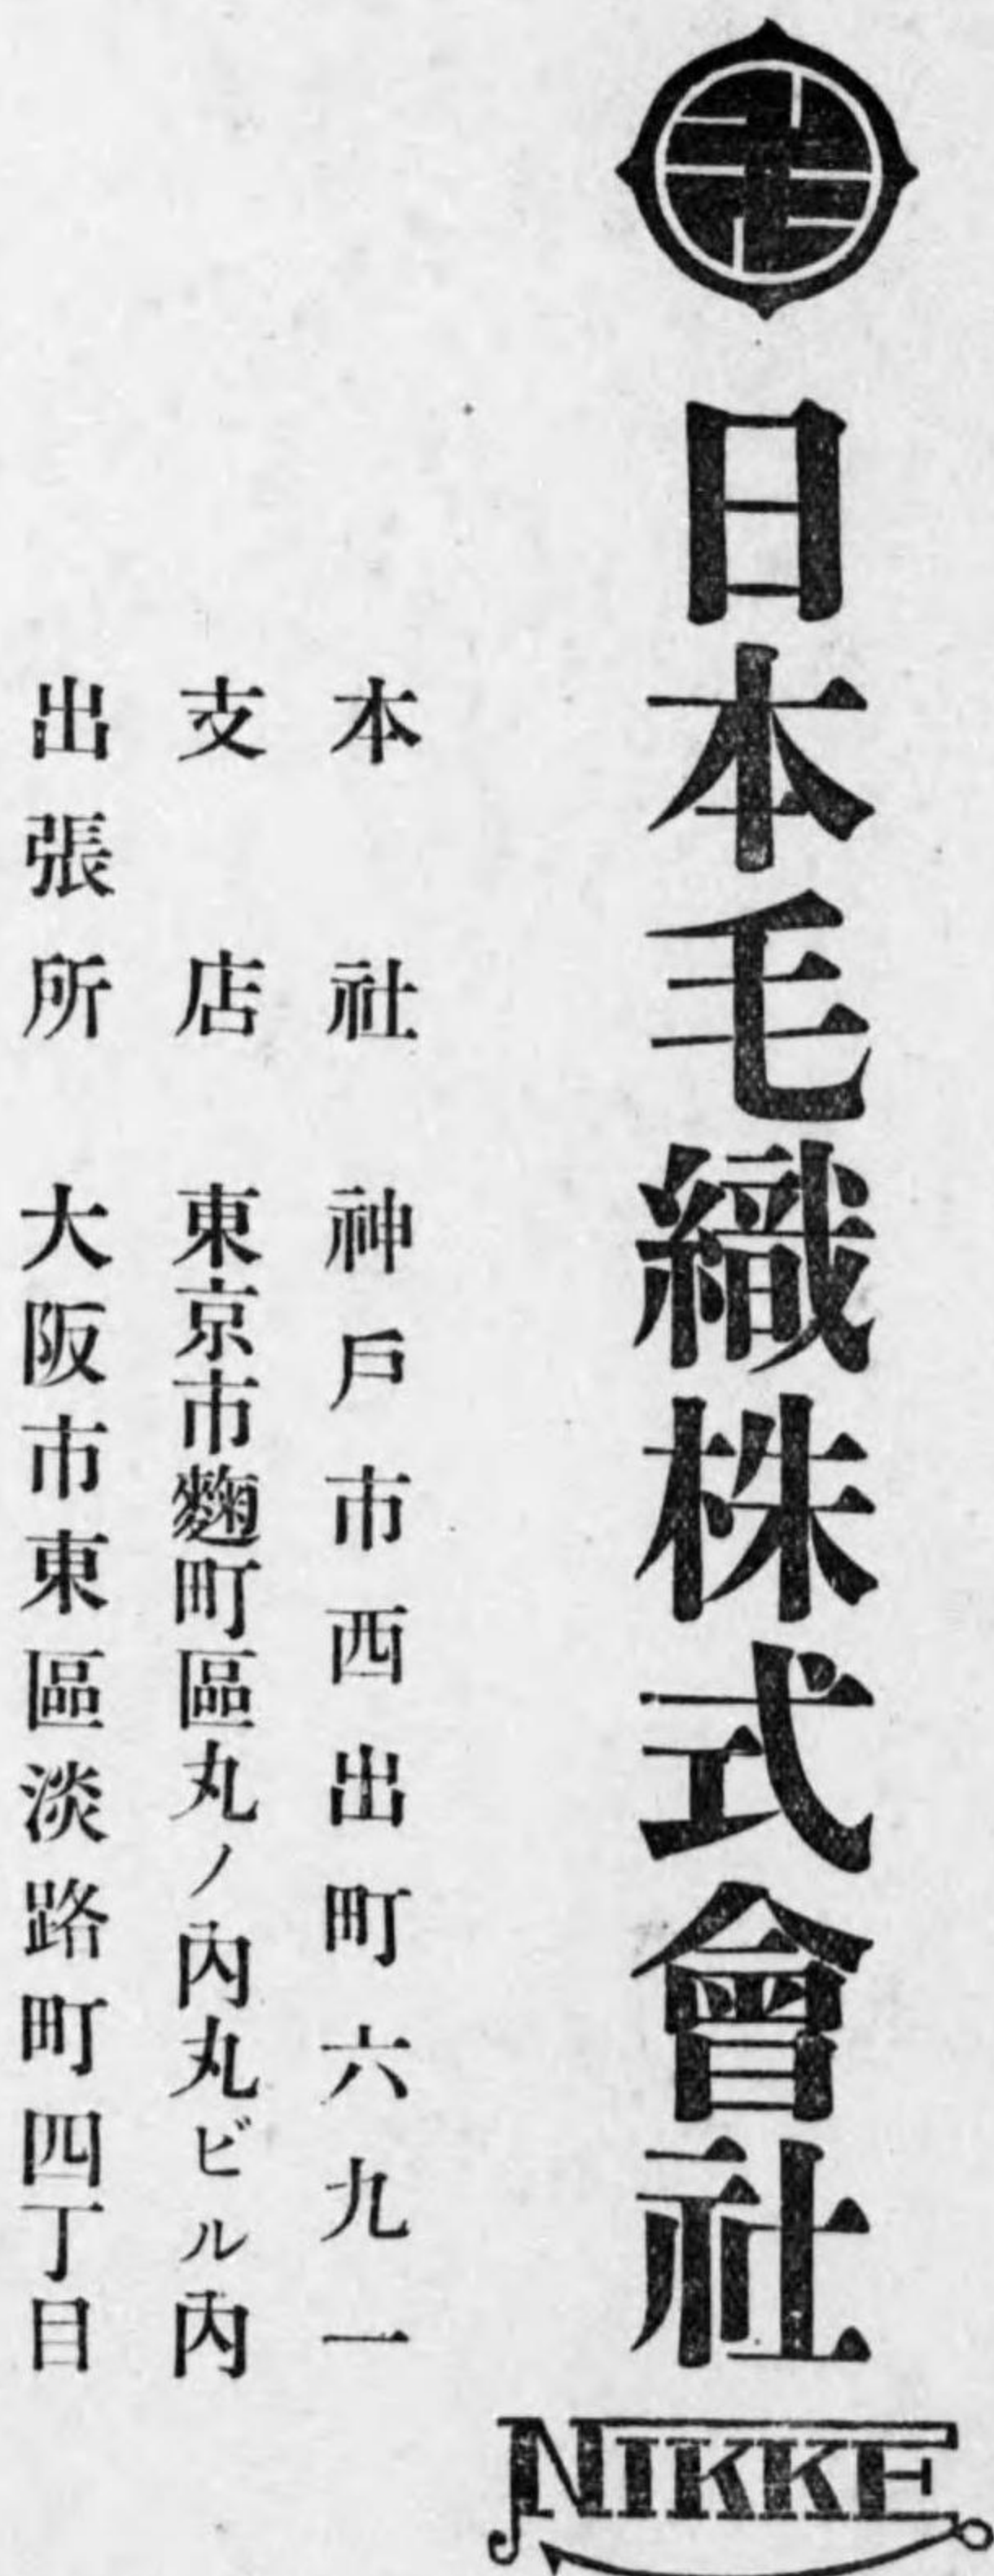 日本毛織株式會社
NIKKE
本社 神戶市西出町六九一
支店 東京市麴町區丸ノ內丸ビル內
出張所 大阪市東區淡路町四丁目